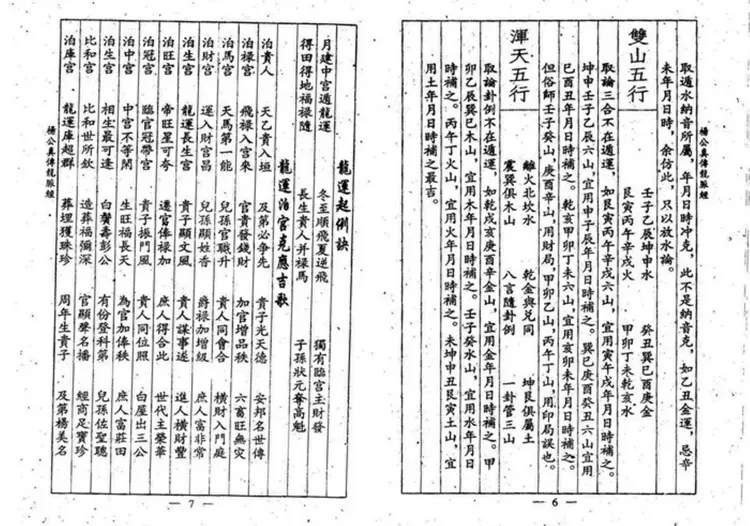 楊公真傳龍脈經
取遁水納音所屬，年月日時冲克，此不是納音克，如乙丑金運，忌辛
未年月日時，余仿此，只以放水論。
雙山五行
壬子乙辰坤申水　癸丑巽巳酉庚金
艮寅丙午辛戌火　甲卯丁未乾亥水
取論三合不在遁運，如艮寅丙午辛戌六山，宜用寅午戌年月日時補之。
坤申壬子乙辰六山，宜用申子辰年月日時補之。巽巳庚酉癸丑六山宜用
巳酉丑年月日時補之。乾亥甲卯丁未六山，宜用亥卯未年月日時補之。
但俗師壬子癸山，庚酉辛山，用財局，甲卯乙山，丙午丁山，用印局誤也。
渾天五行
離火北坎水　乾金與兌同　坤艮俱屬土
震巽俱木山　八言隨卦例　一卦管三山
取論卦例不在遁運，如乾戌亥庚酉辛金山，宜用金年月日時補之。甲
卯乙辰巽巳木山，宜用木年月日時補之。壬子癸水山，宜用水年月日
時補之。丙午丁火山，宜用火年月日時補之。未坤申丑艮寅土山，宜
用土年月日時補之最吉。
— 6 —
龍運起例訣
月建中宮遁龍運　冬至順飛夏逆飛　獨有臨宮主財發
得田得地福祿隨　長生貴人并祿馬　子孫狀元奪高魁
龍運泊宮克應吉歌
泊貴人　天乙貴人垣　及第必爭先　貴子光天德　安邦名世傳
泊祿宮　飛祿入宮來　官貴發錢財　加官增品秩　六畜旺無災
泊馬宮　天馬第一能　兒孫官職升　貴人同會合　橫財入門庭
泊財宮　運入財宮昌　兒孫顯姓香　爵祿加增級　庶人富非常
泊生宮　龍運長生宮　貴子顯文風　貴人謀事遂　進人橫財豐
泊旺宮　帝旺星可夸　遷官俸祿加　庶人得合此　世代主榮華
泊冠宮　臨官冠帶宮　貴子振門風　貴人同位照　白屋出三公
泊中宮　中宮不等閑　生旺福長天　為官加俸秩　庶人富莊田
泊生宮　相生最可逢　白鬢壽彭公　有份登科第　兒孫佐聖聰
比和宮　比和世所欽　造葬福彌深　官顯聲名播　經商足寶珍
泊庫宮　龍運庫超群　葬埋獲珠珍　周年生貴子　及第楊美名
楊公真傳龍脈經
— 7 —